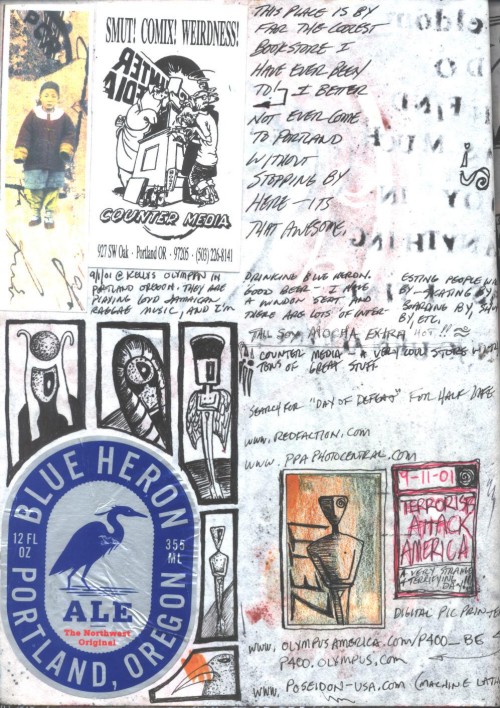 SMUT! COMIX! WEIRDNESS!
COUNTER
MEDIA
COUNTER MEDIA
927 SW Oak · Portland OR · 97205 · (503) 226-8141
THIS PLACE IS BY
FAR THE COOLEST
BOOKSTORE I
HAVE EVER BEEN
TO! I BETTER
NOT EVER COME
TO PORTLAND
WITHOUT
STOPPING BY
HERE - ITS
THAT AWESOME.
9/1/01 @ KELLYS OLYMPIAN IN
PORTLAND OREGON. THEY ARE
PLAYING LOUD JAMAICAN
RAGGAE MUSIC, AND I'M
DRINKING BLUE HERON.
GOOD BEER - I HAVE
A WINDOW SEAT AND
THERE ARE LOTS OF INTER-
ESTING PEOPLE
BY - SKATING BY
BOARDING BY,
BY, ETC.
TALL SOY MOCHA EXTRA HOT!!
COUNTER MEDIA - A VERY COOL STORE WITH
TONS OF GREAT STUFF
SEARCH FOR "DAY OF DEFEAT" FOR HALF LIFE
WWW.REDFACTION.COM
WWW.PPAPHOTOCENTRAL.COM
BLUE HERON
12 FL
OZ
355
ML
ALE
The Northwest
Original
PORTLAND, OREGON
9-11-01
TERRORISTS
ATTACK
AMERICA
A VERY STRANGE
& TERRIFYING
DAY!!
DIGITAL PIC PRINTER
WWW.OLYMPUSAMERICA.COM/P400_BE
P400.OLYMPUS.COM
WWW.POSEIDON-USA.COM (MACHINE